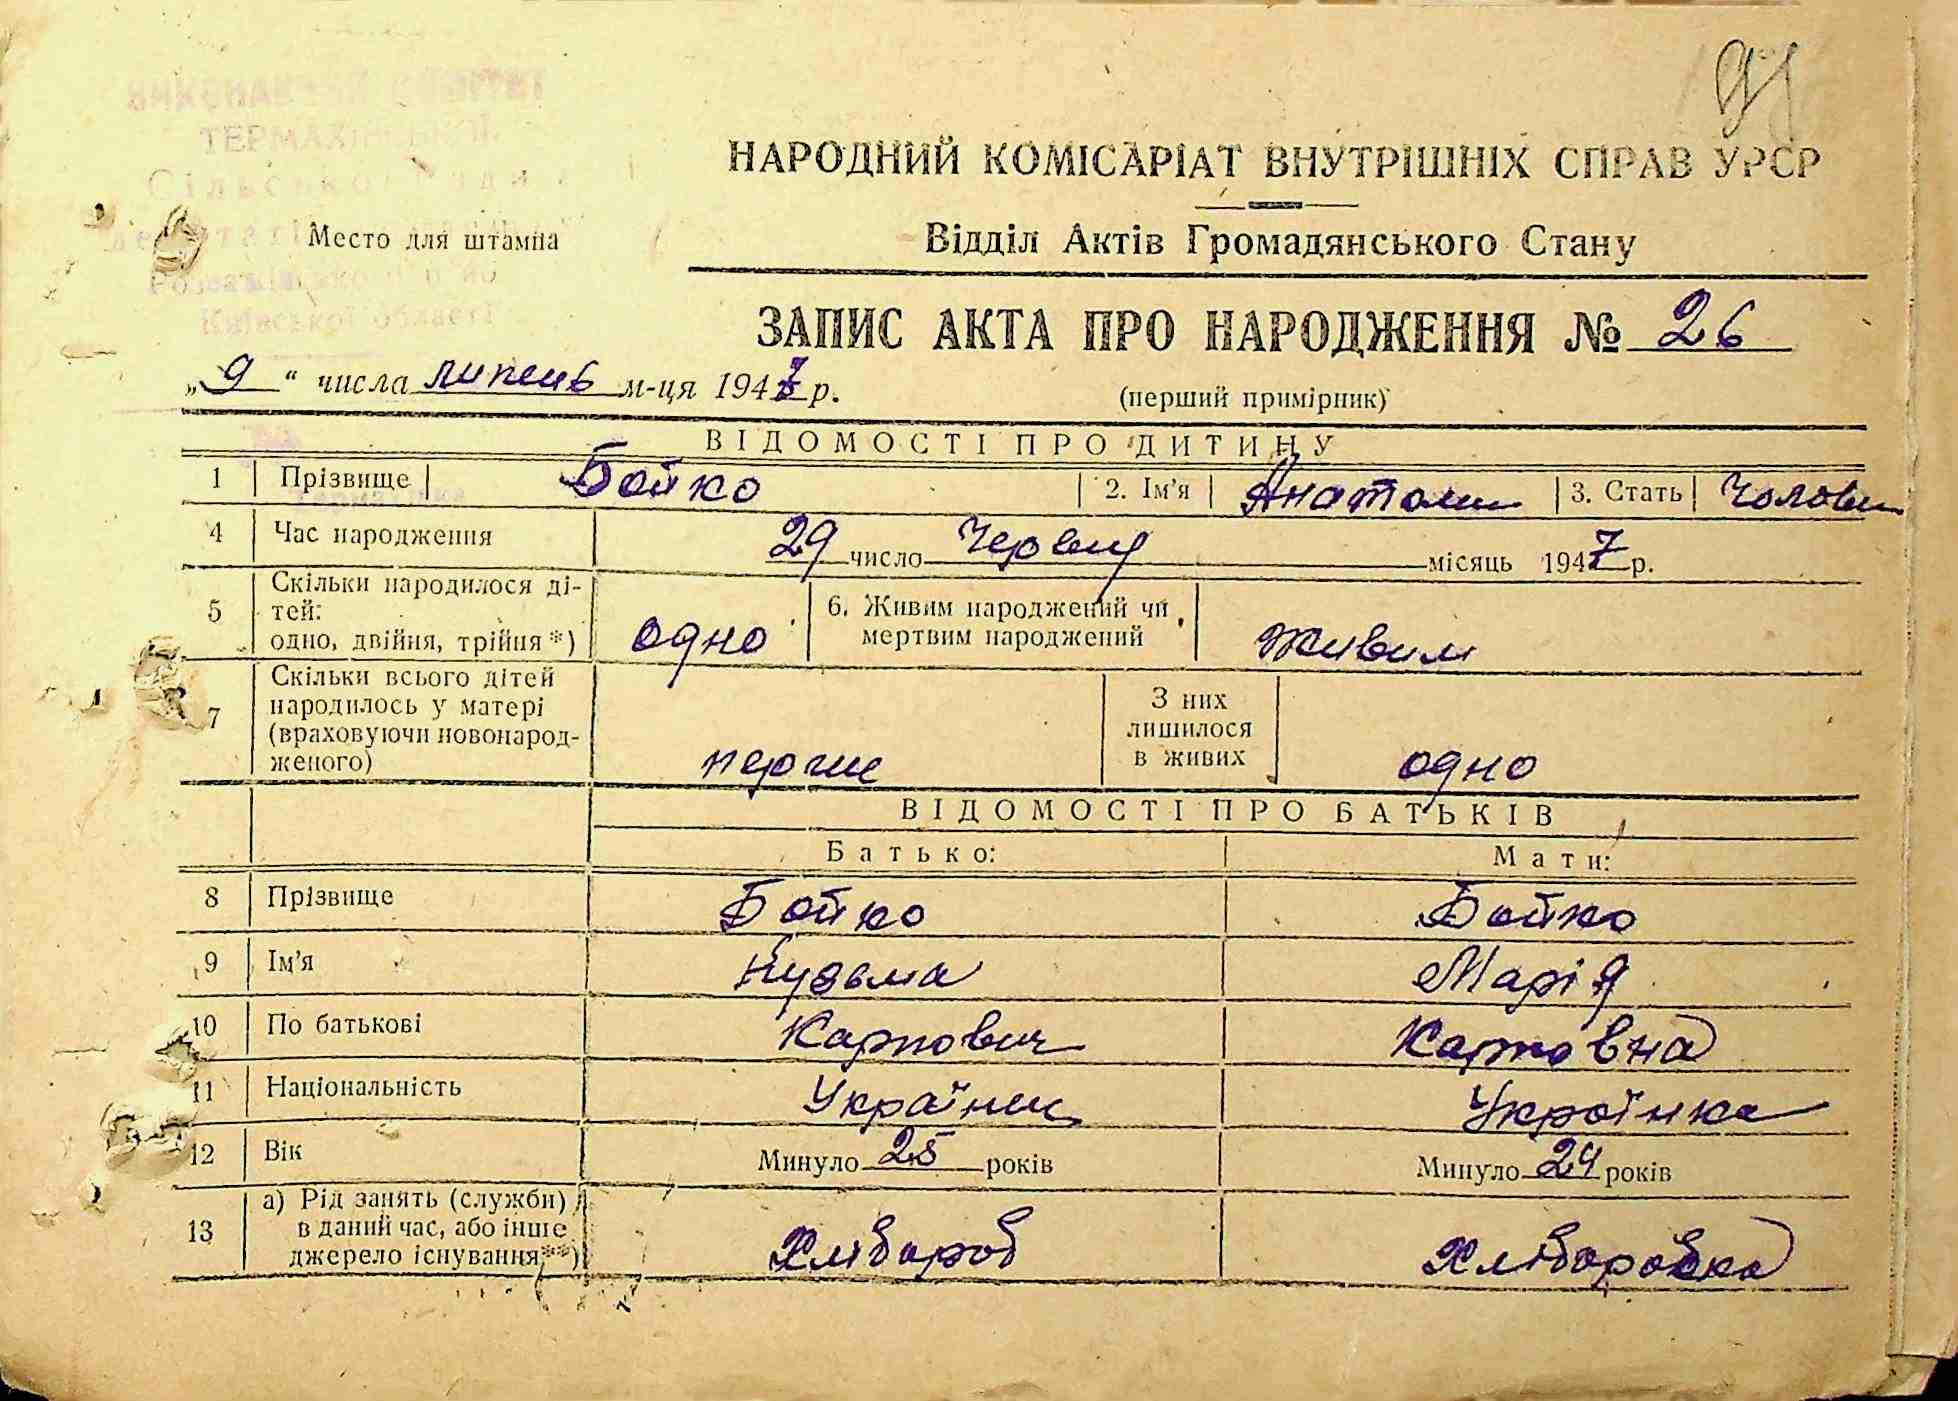 ВИКОНАВЧИЙ КОМІТЕТ
ТЕРМАХІВСЬКОЇ
Сільської Ради
депутатів
Розважівського р-ну
Київської області
Место для штампа
НАРОДНИЙ КОМІСАРІАТ ВНУТРІШНІХ СПРАВ УРСР
Відділ Актів Громадянського Стану
ЗАПИС АКТА ПРО НАРОДЖЕННЯ № 26
„9“ числа липень м-ця 1947 р.
(перший примірник)
ВІДОМОСТІ ПРО ДИТИНУ
1 Прізвище Бойко 2. Ім'я Анатолий 3. Стать Чоловіч
4 Час народження 29 число Червня місяць 1947 р.
5 Скільки народилося ді-
тей:
одно, двійня, трійня*) одно 6. Живим народжений чи
мертвим народжений живим
7 Скільки всього дітей
народилось у матері
(враховуючи новонарод-
женого) перше З них
лишилося
в живих одно
ВІДОМОСТІ ПРО БАТЬКІВ
Батько: Мати:
8 Прізвище Бойко Бойко
9 Ім'я Кузьма Марія
10 По батькові Карпович Карповна
11 Національність Українец Українка
12 Вік Минуло 25 років Минуло 24 років
13 а) Рід занять (служби)
в даний час, або інше
джерело існування**) Хлібороб Хліборобка